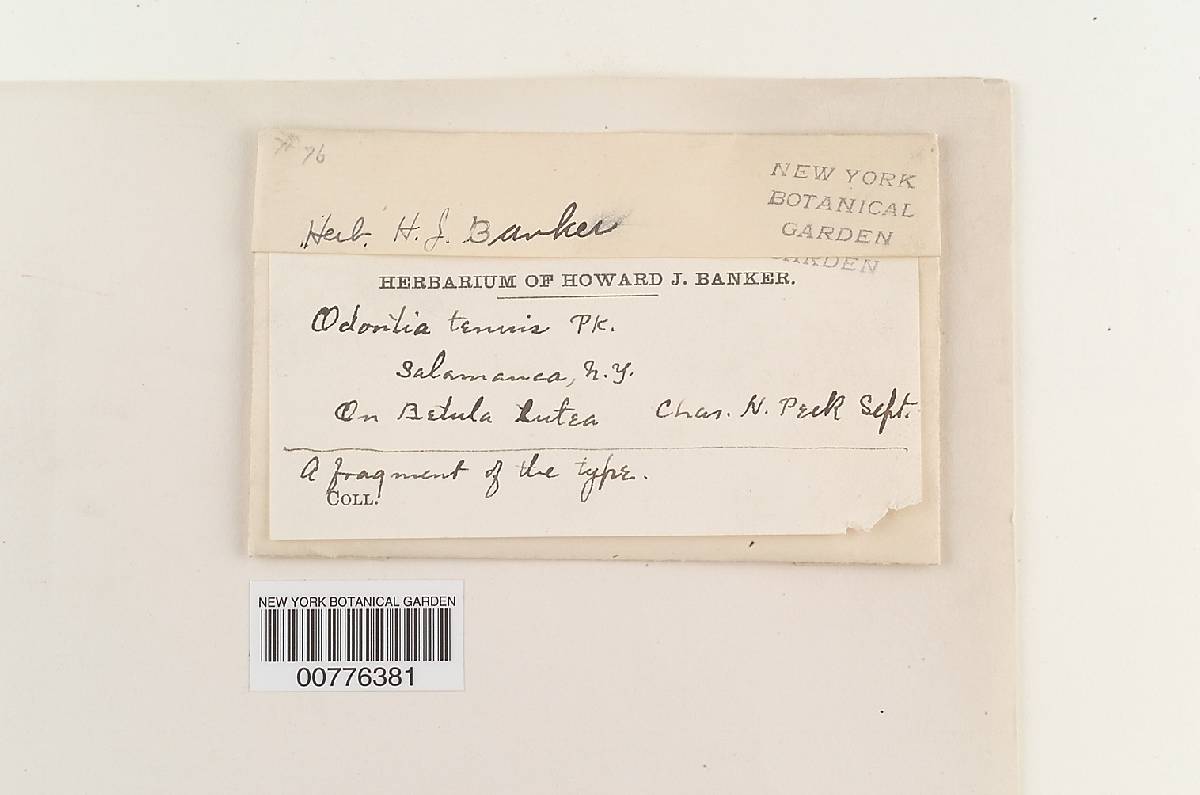 # 76
NEW YORK
BOTANICAL
GARDEN
GARDEN
Herb. H. J. Banker
HERBARIUM OF HOWARD J. BANKER.
Odontia tenuis Pk.
Salamanca, N.Y.
On Betula lutea Chas. H. Peck Sept.
A fragment of the type.
COLL.
NEW YORK BOTANICAL GARDEN
00776381